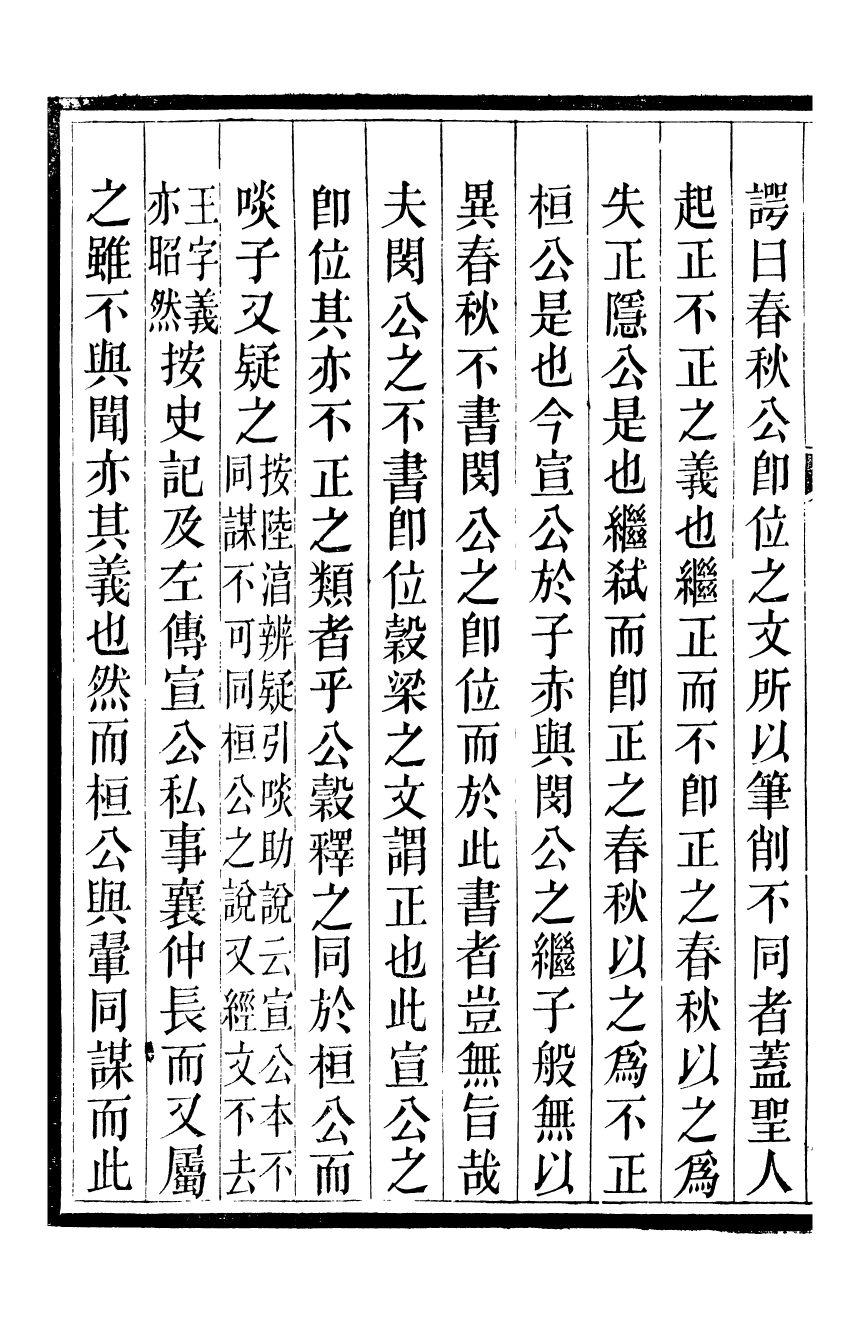 諤曰春秋公卽位之文所以筆削不同者蓋聖人
起正不正之義也繼正而不卽正之春秋以之爲
失正隱公是也繼弑而卽正之春秋以之爲不正
桓公是也今宣公於子赤與閔公之繼子般無以
異春秋不書閔公之卽位而於此書者豈無旨哉
夫閔公之不書卽位穀梁之文謂正也此宣公之
卽位其亦不正之類者乎公穀釋之同於桓公而
啖子又疑之按陸淳辨疑引啖助說云宣公本不
同謀不可同桓公之說又經文不去
王字義
亦昭然按史記及左傳宣公私事襄仲長而又屬
之雖不與聞亦其義也然而桓公與翬同謀而此